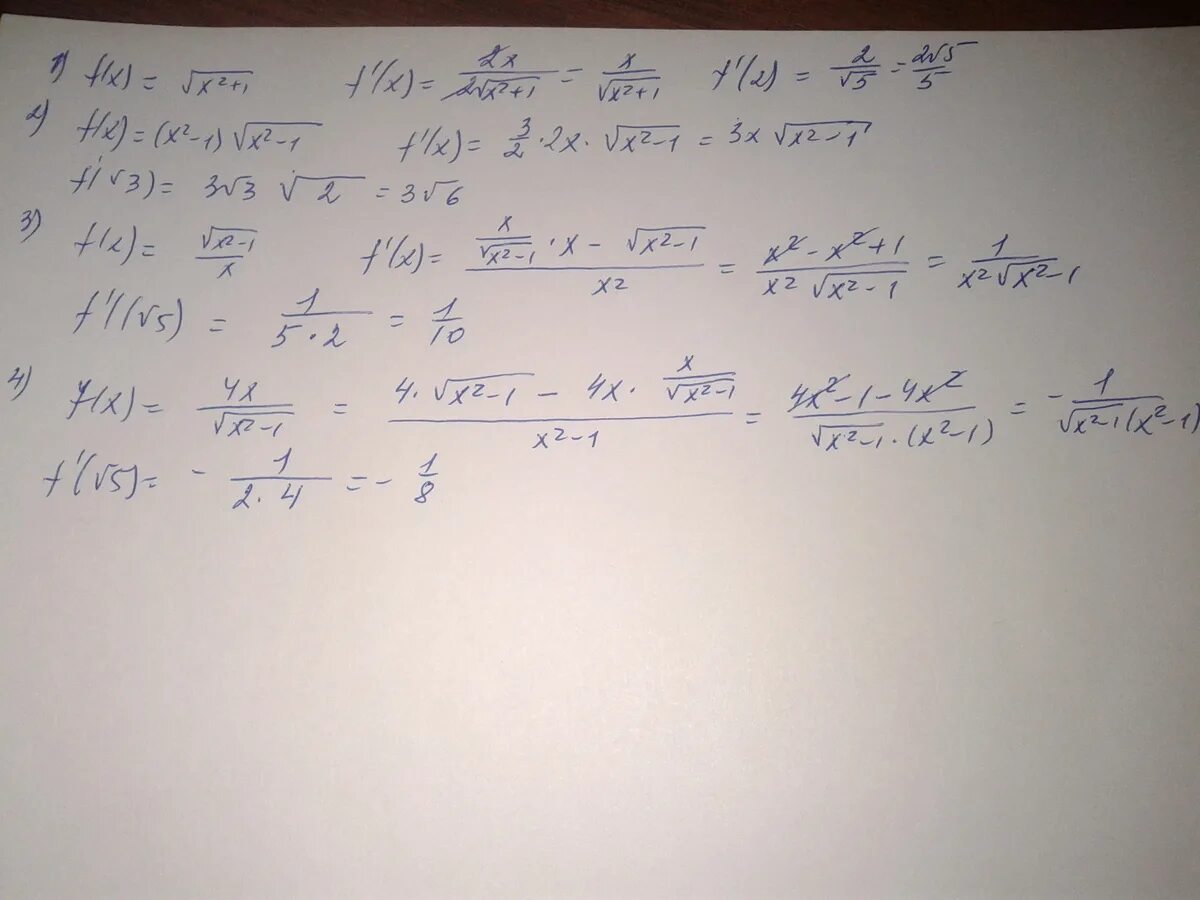 1) f(x) = √(x²+1)   f'(x) = 2x/(2√(x²+1)) = x/√(x²+1)   f'(2) = 2/√5 = 2√5/5
2) f(x) = (x²-1)√(x²-1)   f'(x) = 3/2 · 2x · √(x²-1) = 3x√(x²-1)
f'(√3) = 3√3 √2 = 3√6
3) f(x) = √(x²-1)/x   f'(x) = (x/√(x²-1) · x - √(x²-1))/x² = (x²-x²+1)/(x²√(x²-1)) = 1/(x²√(x²-1))
f'(√5) = 1/(5·2) = 1/10
4) f(x) = 4x/√(x²-1) = (4·√(x²-1) - 4x · x/√(x²-1))/(x²-1) = (4x²-1-4x²)/(√(x²-1)·(x²-1)) = -1/(√(x²-1)(x²-1))
f'(√5) = -1/(2·4) = -1/8